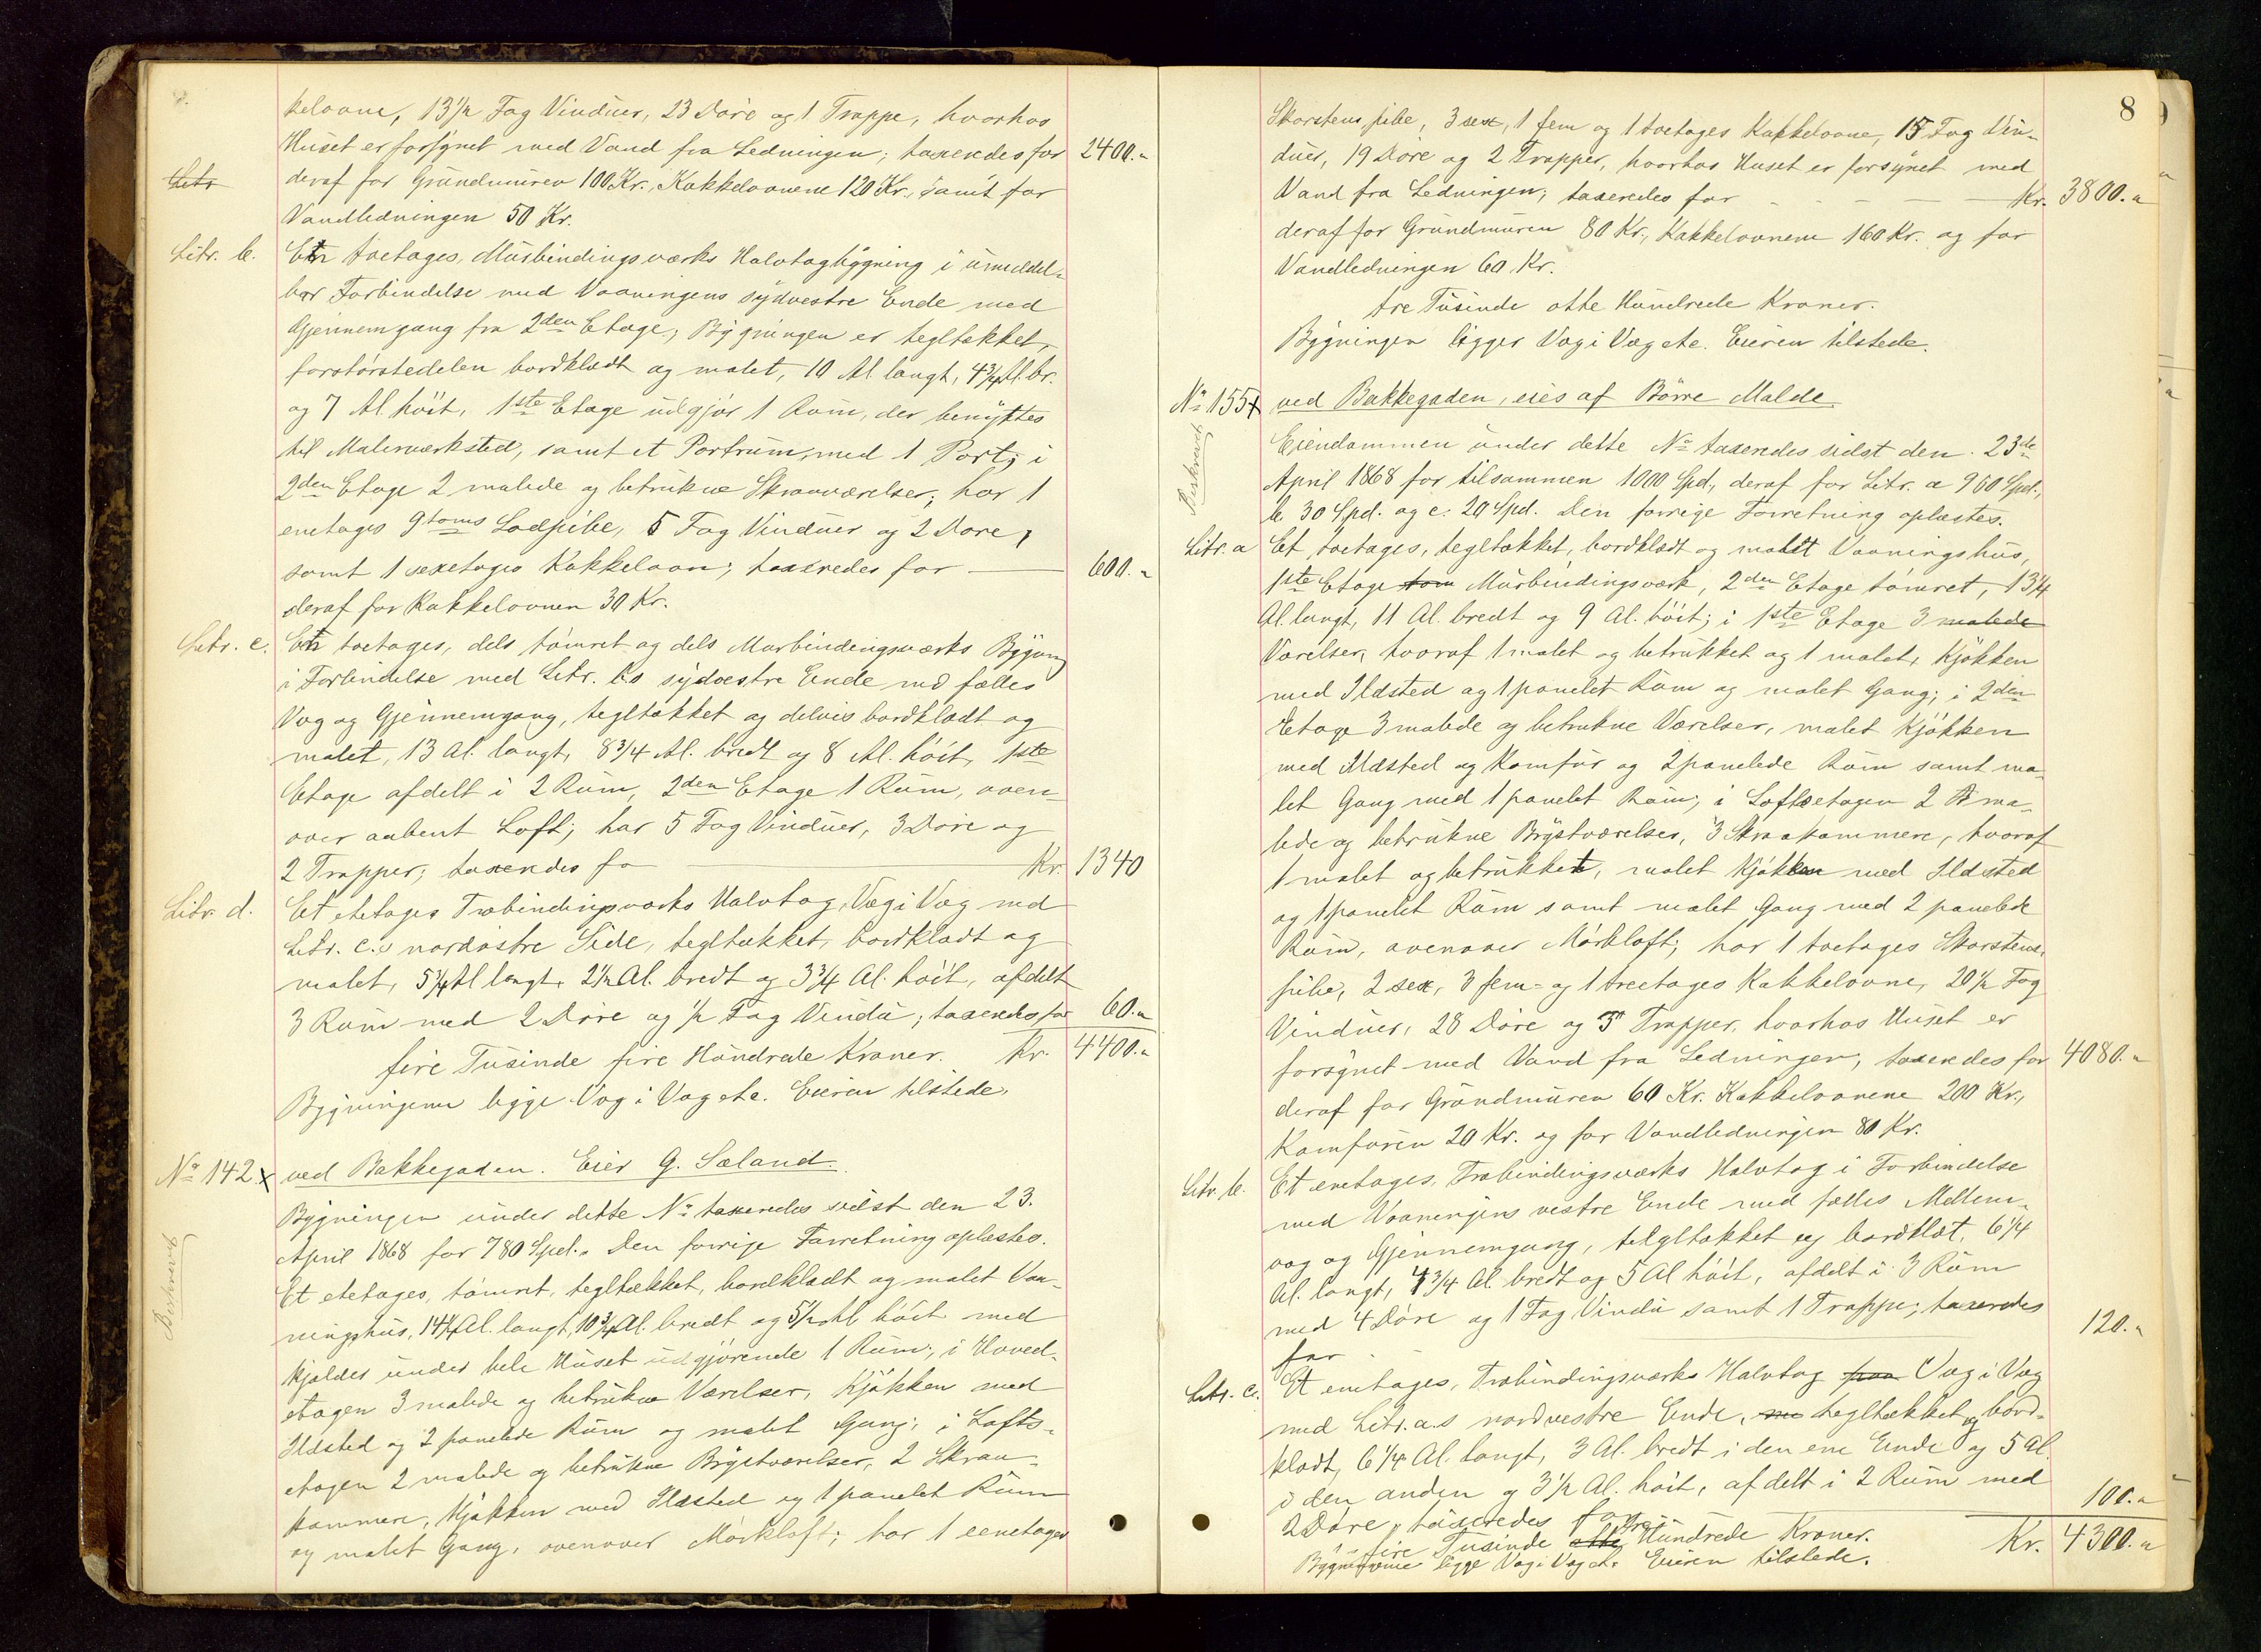 kelovne, 13 1/2 Fag Vinduer, 23 Døre og 1 Trappe, hvorhos
Huset er forsynet med Vand fra Ledningen; taxeredes for 2400.-
Litr deraf for Grundmuren 100 Kr., Kakkelovnene 120 Kr., samt for
Vandledningen 50 Kr.
Litr. b. En toetages, Murbindingsværks Halvtagbygning i umiddel-
bar Forbindelse med Vaaningens sydvestre Ende med
Gjennemgang fra 2den Etage; Bygningen er tegltækket,
forstørstedelen bordklædt og malet, 10 Al. langt, 4 3/4 Al. br.
og 7 Al. høit, 1ste Etage udgjør 1 Rum, der benyttes
til Malerværksted, samt et Portrum, med 1 Port; i
2den Etage 2 malede og betrukne Skraaværelser; har 1
enetages 9toms Lodpibe, 5 Fag Vinduer og 2 Døre,
samt 1 sexetages Kakkelovn; taxeredes for 600.-
deraf for Kakkelovnen 30 Kr.
Litr. c. En toetages, dels tømret og dels Murbindingsværks Bygning
i Forbindelse med Litr. b.s sydvestre Ende md fælles
Væg og Gjennemgang, tegltækket og delvis bordklædt og
malet, 13 Al. langt, 8 3/4 Al. bredt og 8 Al. høit, 1ste
Etage afdelt i 2 Rum, 2den Etage 1 Rum, oven-
over aabent Loft; har 5 Fag Vinduer, 3 Døre og
2 Trapper; taxeredes fo Kr. 1340
Litr. d. Et etetages Træbindingsværks Halvtag, Væg i Væg med
Litr. c.s nordøstre Side, tegltækket, bordklædt og
malet, 5 1/4 Al langt, 2 1/2 Al. bredt og 3 3/4 Al. høit, afdelt
3 Rum med 2 Døre og 1/2 Fag Vindu; taxeredes for 60.-
fire Tusinde fire Hundrede Kroner. Kr. 4400.-
Bygningerne ligge Væg i Væg etc. Eieren tilstede.
No 142 x ved Bakkegaden. Eier G. Sæland.
Beskrevet
Bygningen under dette No taxeredes sidst den 23.
April 1868 for 780 Spd. Den forrige Forretning oplæstes.
Et etetages, tømret, tegltækket, bordklædt og malet Vaa-
ningshus, 14 1/4 Al. langt, 10 3/4 Al. bredt og 5 1/2 Al høit med
Kjælder under hele Huset udgjørende 1 Rum; i Hoved-
etagen 3 malede og betrukne Værelser, Kjøkken med
Ildsted og 2 panelede Rum og malet Gang; i Lofts-
etagen 2 malede og betrukne Brystværelser, 2 Skraa-
kammere, Kjøkken med Ildsted og 1 panelet Rum
og malet Gang, ovenover Mørkloft; har 1 eenetages
8
Skorstenspibe, 3 sex, 1 fem og 1 toetages Kakkelovne, 15 Fag Vin-
duer, 19 Døre og 2 Trapper, hvorhos Huset er forsynet med
Vand fra Ledningen; taxeredes for Kr. 3800.-
deraf for Grundmuren 80 Kr., Kakkelovnene 160 Kr. og for
Vandledningen 60 Kr.
tre Tusinde otte Hundrede Kroner.
Bygningen ligger Væg i Væg etc. Eieren tilstede.
No 155 x ved Bakkegaden, eies af Børre Malde
Beskrevet
Eiendommen under dette No taxeredes sidst den 23de
April 1868 for tilsammen 1000 Spd., deraf for Litr. a 960 Spd.,
b. 30 Spd. og c. 20 Spd. Den forrige Forretning oplæstes.
Litr. a Et toetages, tegltækket, bordklædt og malet Vaaningshus,
1ste Etage tom Murbindingsværk, 2den Etage tømret, 13 1/4
Al. langt, 11 Al. bredt og 9 Al. høit; i 1ste Etage 3 malede
Værelser, hvoraf 1 malet og betrukket og 1 malet, Kjøkken
med Ildsted og 1 panelet Rum og malet Gang; i 2den
Etage 3 malede og betrukne Værelser, malet Kjøkken
med Ildsted og Komfur og 2 panelede Rum samt ma-
let Gang med 1 panelet Rum; i Loftsetagen 2 ma-
lede og betrukne Brystværelser, 3 Skraakammere, hvoraf
1 malet og betrukket, malet Kjøkken med Ildsted
og 1 panelet Rum samt malet Gang med 2 panelede
Rum, ovenover Mørkloft; har 1 toetages Skorstens-
pibe, 2 sex, 3 fem- og 1 treetages Kakkelovne, 20 1/2 Fag
Vinduer, 28 Døre og 3 Trapper, hvorhos Huset er
forsynet med Vand fra Ledningen; taxeredes for 4080.-
deraf for Grundmuren 60 Kr. Kakkelovnene 200 Kr.,
Komfuren 20 Kr. og for Vandledningen 80 Kr.
Litr. b. Et enetages, Træbindingsværks Halvtag i Forbindelse
med Vaaningens vestre Ende med fælles Mellem-
væg og Gjennemgang, telgtækket og bordklæt, 6 1/4
Al. langt, 4 3/4 Al. bredt og 5 Al høit, afdelt i 3 Rum
med 4 Døre og 1 Fag Vindu samt 1 Trappe; taxeredes
for 120.-
Litr. c. Et enetages, Træbindingsværks Halvtag paa Væg i Væg
med Litr. a.s nordvestre Ende, me tegltækket og bord-
klædt, 6 1/4 Al. langt, 3 Al. bredt i den ene Ende og 5 Al.
i den anden og 3 1/2 Al. høit, afdelt i 2 Rum med
2 Døre; taxeredes for 100.-
fire Tusinde otte tre Hundrede Kroner. Kr. 4300.-
Bygningerne ligge Væg i Væg etc. Eieren tilstede.